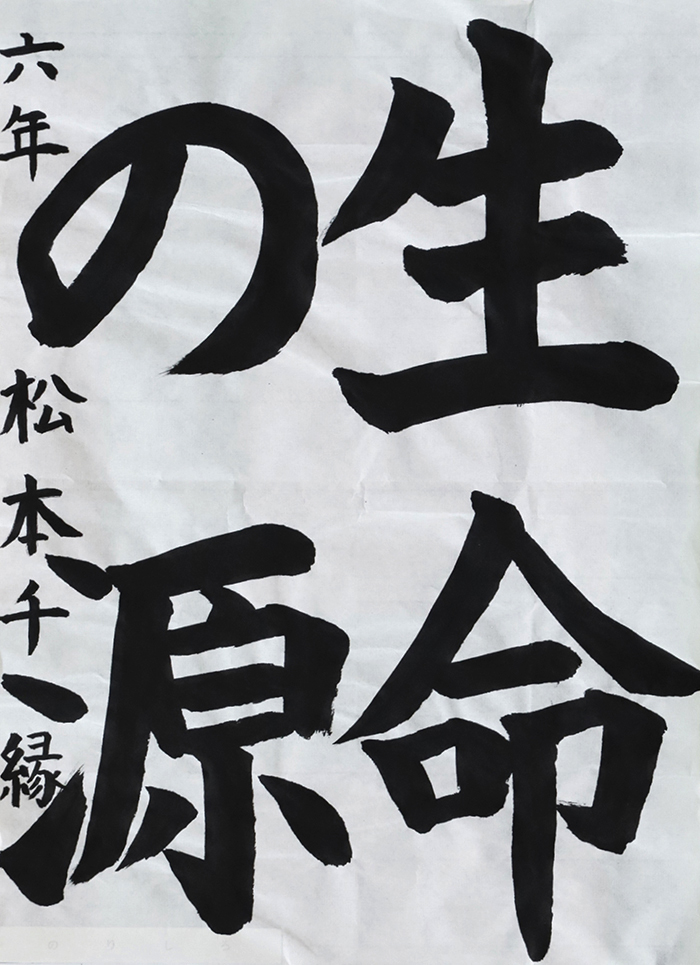 生命
の源
六年 松本千縁